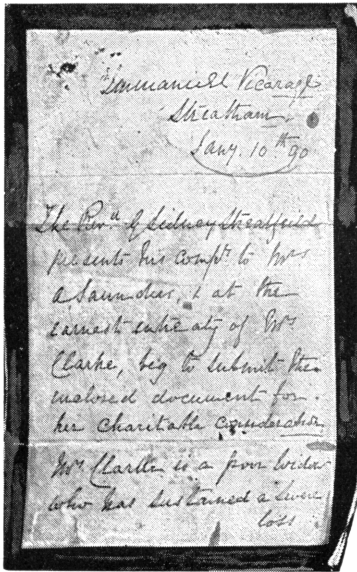 Emmanuel Vicarage
Streatham.
Jany. 10th 90
The Revd G Sidney Streatfield
presents his compts to Mrs
A Saunders, & at the
earnest entreaty of Mrs
Clarke, beg to submit the
inclosed document for
her charitable consideration.
Mrs Clarke is a poor widow
who has sustained a severe
loss